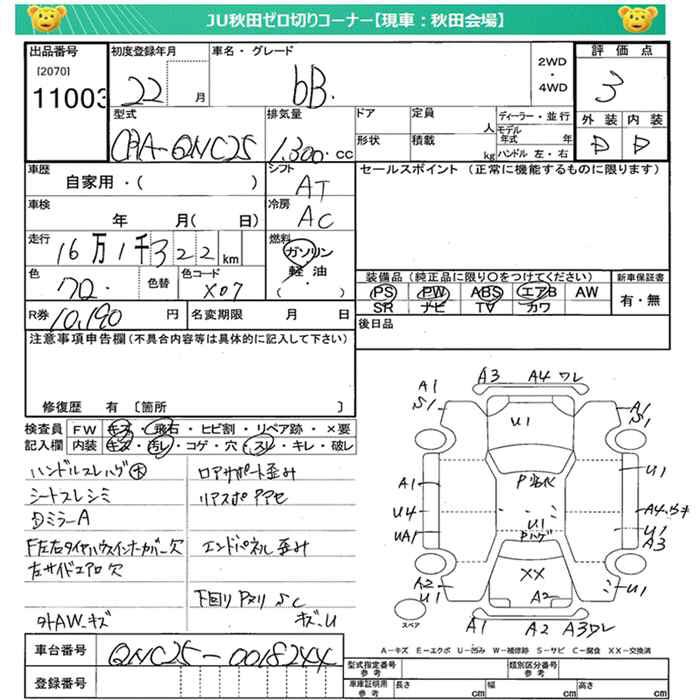 JU秋田ゼロ切りコーナー【現車：秋田会場】
出品番号
[2070]
11003
初度登録年月
22 月
車名・グレード
bB.
2WD
・
4WD
評価点
3
外装 内装
D D
型式
CBA-QNC25
排気量
1,300 cc
ドア
形状
定員
人
積載
kg
ディーラー・並行
モデル年式 年
ハンドル 左・右
車歴
自家用・( )
シフト
AT
セールスポイント（正常に機能するものに限ります）
車検
年 月( 日)
冷房
AC
走行
16万1千322km
燃料
ガソリン
軽油
( )
色
色替
色コード
X07
装備品（純正品に限り○をつけてください）
PS PW ABS エアB AW
SR ナビ TV カワ
新車保証書
有・無
R券
10,190 円
名変期限 月 日
後日品
注意事項申告欄(不具合内容等は具体的に記入して下さい)
修復歴 有 〔箇所 〕
検査員記入欄
FW キズ・飛石・ヒビ割・リペア跡・×要
内装 キズ・汚レ・コゲ・穴・スレ・キレ・破レ
ハンドルスレハゲ大
ロアサポート歪み
シートスレシミ
DミラーA
F左右タイヤハウスインナーカバー欠
エンドパネル歪み
左サイドエアロ欠
下回りPヌリ SC
外AWキズ
キズ、U
A3 A4ワレ
A1
S1
A1
S1
U1
A1
U1
U4
UA1
U1
Pハゲ
U1
A3
XX
A2
U1
A2
U1
A1 A2 A3ワレ
スペア
A－キズ E－エクボ U－凹み W－補修跡 S－サビ C－腐食 XX－交換済
車台番号
QNC25-0018244
登録番号
型式指定番号
参考
類別区分番号
参考
車庫証明用
参考
長さ cm
幅 cm
高さ cm